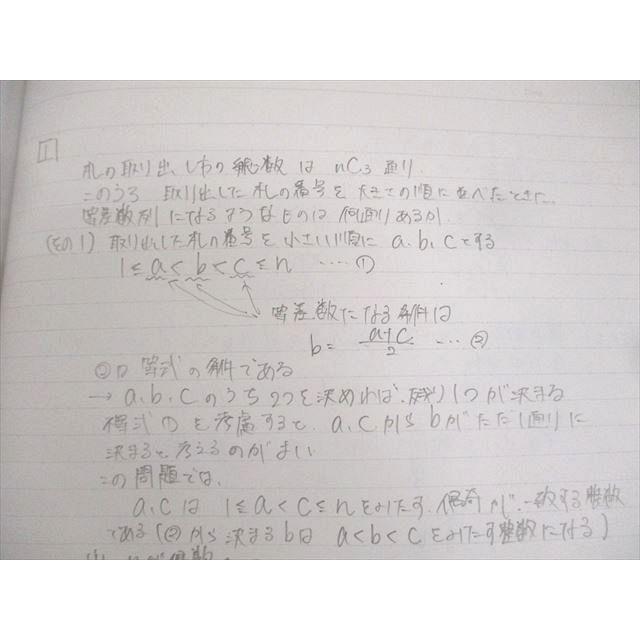 1
札の取り出し方の総数は nC3 通り.
このうち 取り出した札の番号を大きさの順に並べたとき…
等差数列になるようなものは 何通りあるか.
(その1) 取り出した札の番号を小さい順に a.b.cとする
1≤a<b<c≤n ‥‥①
等差数になる条件は
b= a+c/2 … ②
②は等式の条件である
→ a.b.cのうち2つを決めれば.残り1つが決まる
不等式①を考慮すると. a.cからbがただ1通りに
決まると考えるのがよい
この問題では.
a.cは 1≤a<c≤nをみたす.偶奇が一致する整数
である(②から決まるbは a<b<cをみたす整数になる)